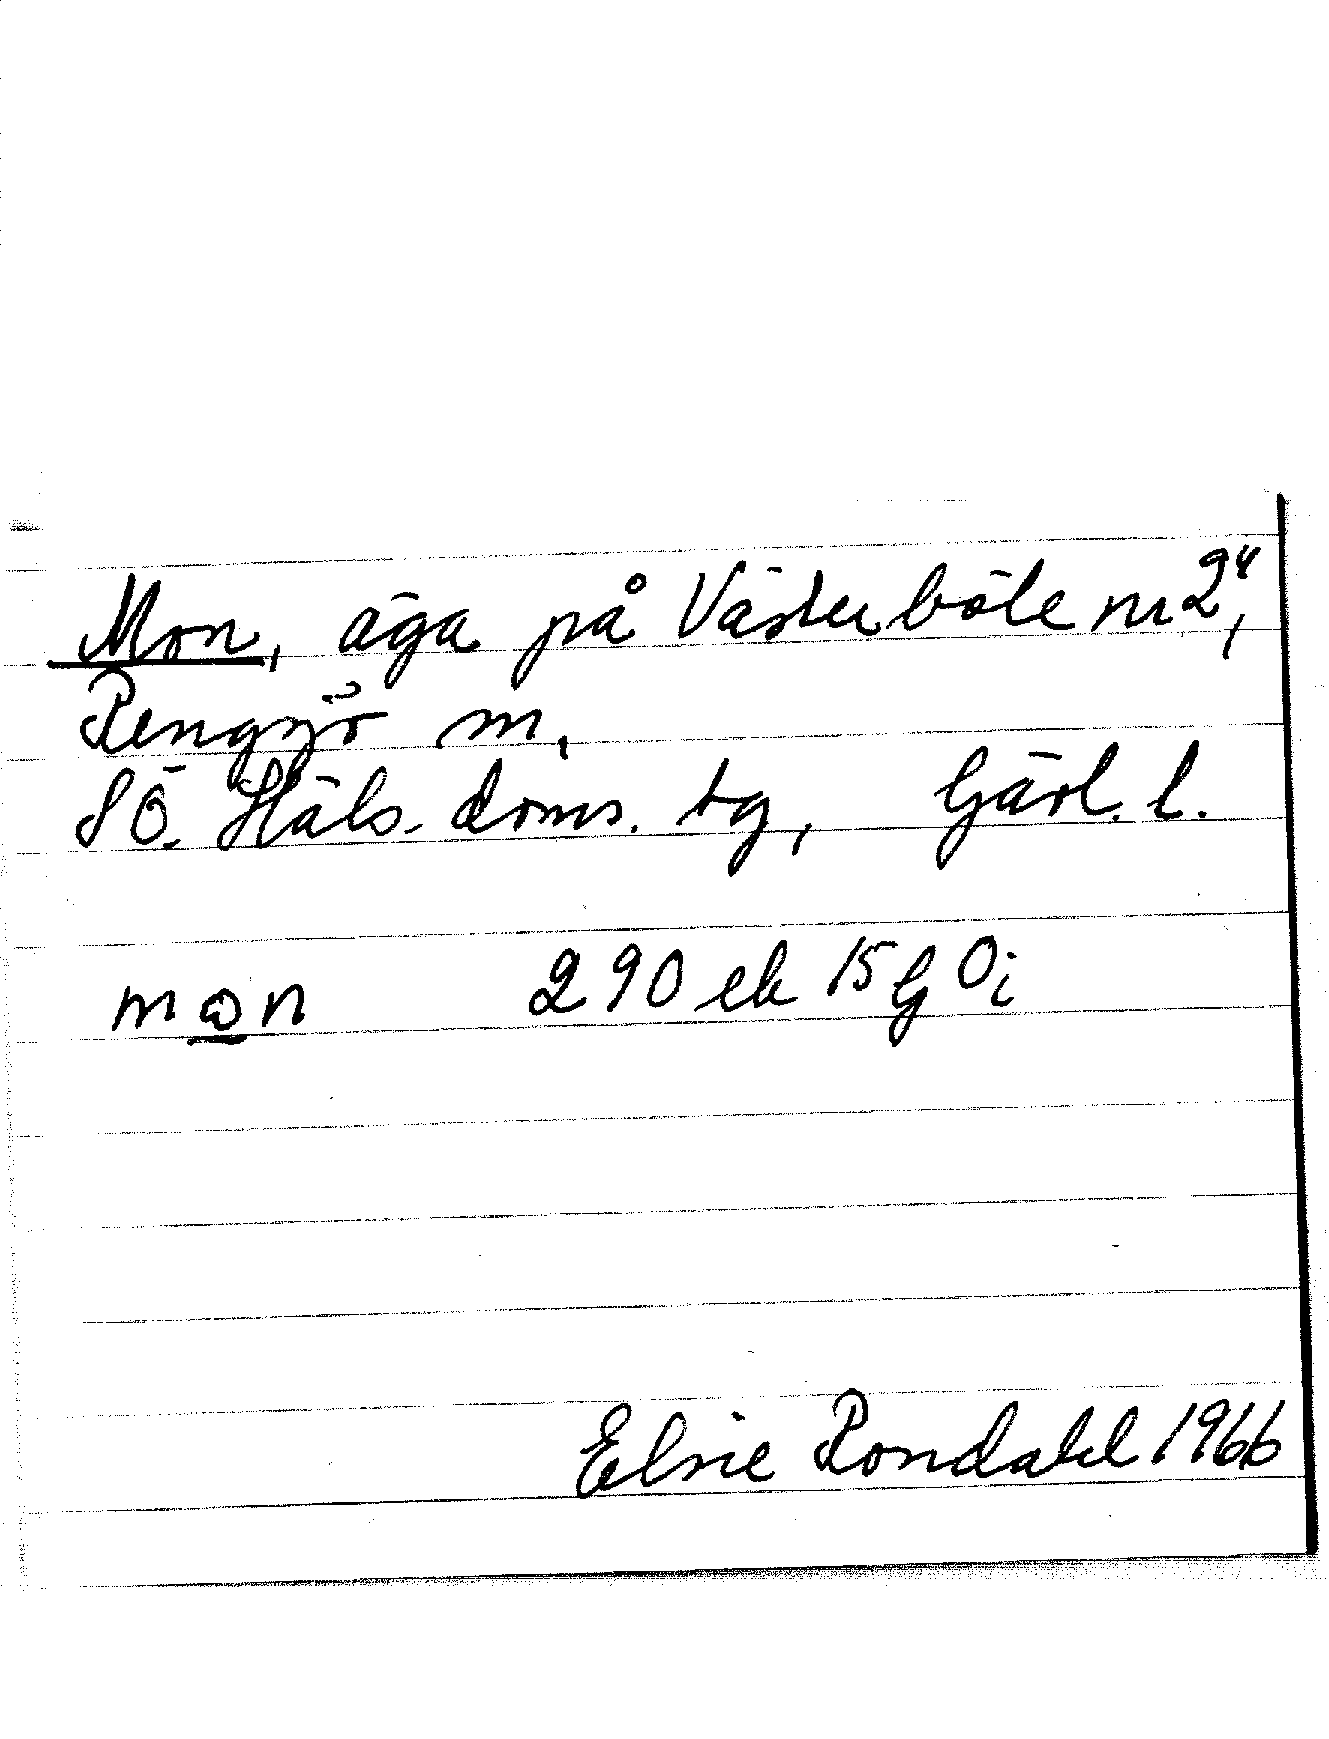 Mon, äga på Västerböle nr 2⁴,
Rengsjö sn,
SÖ. Häls. doms. tg, Gävl. l.
mɷn 290 ek 15G 0i
Elsie Rondahl 1966